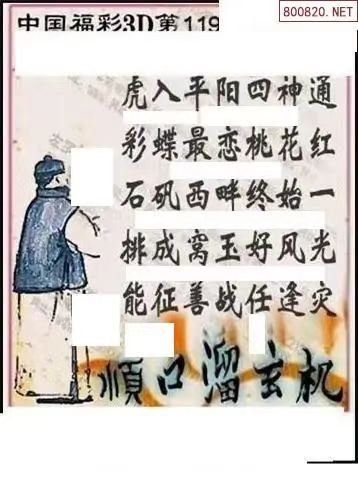 800820.NET
中国福彩3D第119
虎入平阳四神通
彩蝶最恋桃花红
石矶西畔终始一
排成窝玉好风光
能征善战任逢灾
顺口溜玄机